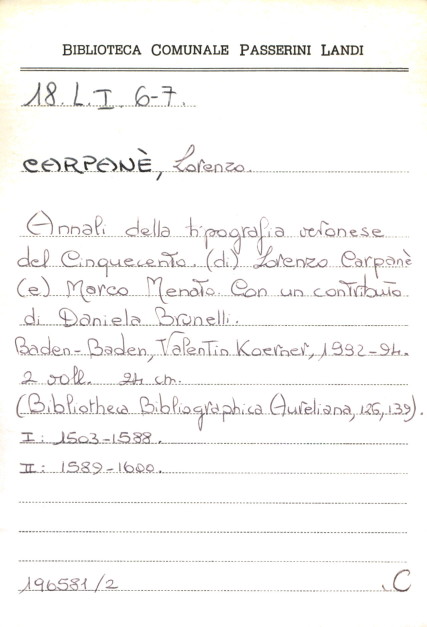 BIBLIOTECA COMUNALE PASSERINI LANDI
18. L. I. 6-7.
CARPANÈ, Lorenzo.
Annali della tipografia veronese
del Cinquecento. (di) Lorenzo Carpanè
(e) Marco Menato. Con un contributo
di Daniela Brunelli.
Baden-Baden, Valentin Koerner, 1992-94.
2 voll. 24 cm.
(Bibliotheca Bibliographica Aureliana, 126, 139).
I: 1503-1588.
II: 1589-1600.
196581/2 .C